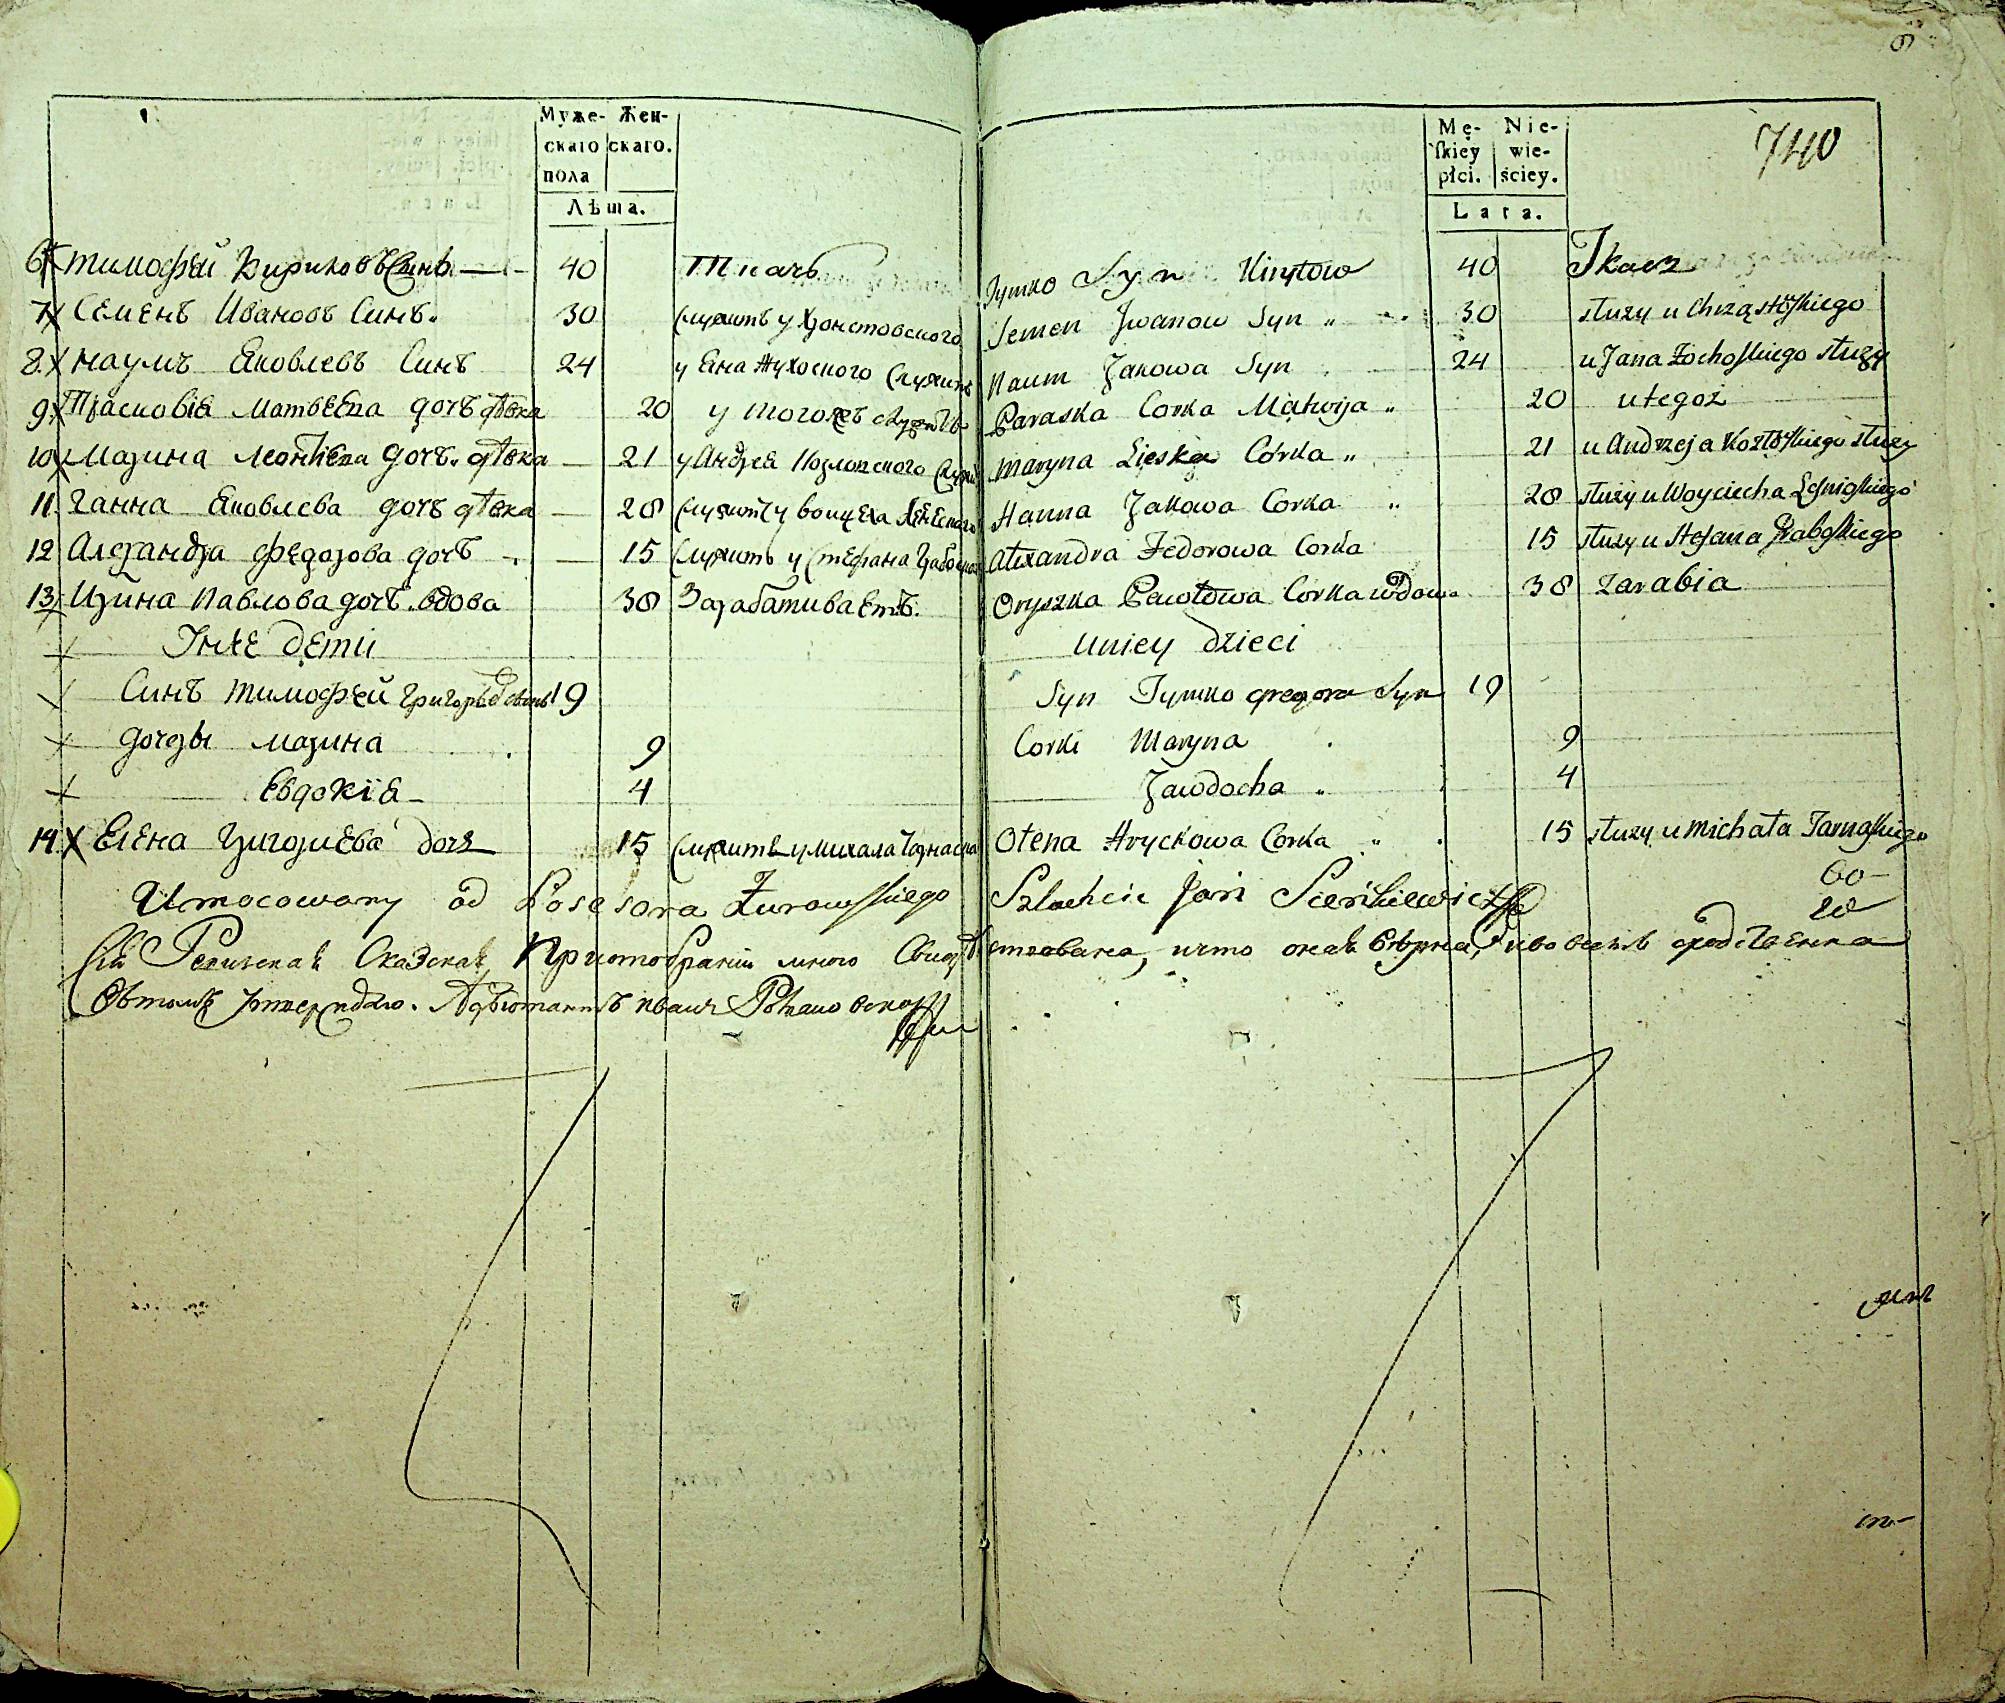 Муже- Жен-
скаго скаго.
пола
Лѣта.
6 Тимофей Кириловъ Синъ 40 Ткачъ
7 Семенъ Ивановъ Синъ. 30 Служитъ у Хронстовского
8. Наумъ Яковлевъ Синъ 24 у Яна Жухоского Служитъ
9 Прасковія Матвеева дочъ дѣвка 20 у того же служитъ
10 Марина Леонтіева дочъ. дѣвка 21 у Андрея Козловского Служи
11. Ганна Яковлева дочъ дѣвка 28 Служит у Войцеха
12 Александра Федорова дочъ 15 Служитъ у Стефана Грабоского
13 Ирина Павлова дочъ. вдова 38 Зарабативаетъ.
У нее дети
Синъ Тимофей Григорьевъ 19
дочеры Марина 9
Евдокія 4
14. Елена Григориева дочъ 15 Служитъ у Михала Тарнаского
6
740
Mę- Nie-
skiey wie-
płci. ściey.
Lata.
Tymko Syn Kiryłow 40 Tkacz
Semen Jwanow Syn „ 30 służy u Chrząstoskiego
Naum Jakowa Syn 24 u Jana Żochoskiego służy
Paraska Corka Matwija „ 20 u tegoż
Maryna Lieska Córka „ 21 u Andrzeja Kozłoskiego służy
Hanna Jakowa Corka „ 28 służy u Woyciecha
Alexandra Fedorowa Corka 15 służy u Stefana Graboskiego
Oryszka Pawłowa Corka wdowa 38 zarabia
u niey dzieci
Syn Tymko Gregora Syn 19
Corki Maryna 9
Jawdocha „ 4
Ołena Hryckowa Corka „ 15 służy u Michała Tarnaskiego
60
28
Umocowany od Posesora Żurowskiego Szlachcic Jan Sieńkiewicz
Сія Ревизская Сказская При отобраніи мною Свидетелствована, и что оная верна, и во всемъ сходственна
Въ томъ утверждаю. Адъютантъ Иванъ